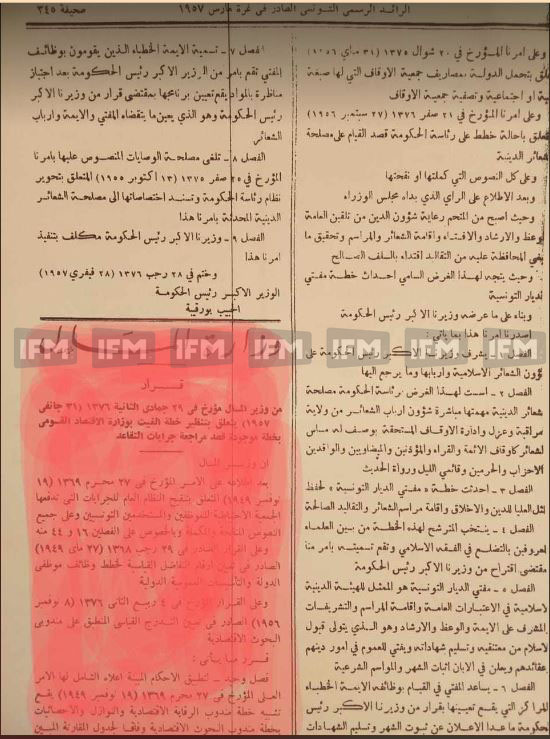 الرائد الرسمي التونسي الصادر في غرة مارس ١٩٥٧
صحيفة ٣٤٥
وعلى امرنا المؤرخ في ٢٠ شوال ١٣٧٥ (٣١ ماي ١٩٥٦)
بتحمل الدولة بمصاريف جمعية الاوقاف التي لها صبغة
او اجتماعية وتصفية جمعية الاوقاف
وعلى امرنا المؤرخ في ٢١ صفر ١٣٧٦ (٢٧ سبتمبر ١٩٥٦)
باحالة خطط على رئاسة الحكومة قصد القيام على مصلحة
الشعائر الدينية
وعلى كل النصوص التي كملتها او نقحتها
وبعد الاطلاع على الرأي الذي بداه مجلس الوزراء
وحيث اصبح من المتحم رعاية شؤون الدين من تلقين العامة
الوعظ والارشاد والافتاء واقامة الشعائر والمراسم وتحقيق ما
المحافظة عليه من التقاليد اقتداء بالسلف الصالح
وحيث يتجه لهذا الغرض السامي احداث خطة مفتي
الديار التونسية
وبناء على ما عرضه وزيرنا الاكبر رئيس الحكومة
اصدرنا امرنا هذا بما يأتي :
الفصل ١ ـ يشرف وزيرنا الاكبر رئيس الحكومة على
شؤون الشعائر الاسلامية واربابها وما يرجع اليها
الفصل ٢ ـ اسست لهذا الغرض برئاسة الحكومة مصلحة
الشعائر الدينية مهمتها مباشرة شؤون ارباب الشعائر من ولاية
مراقبة وعزل وادارة الاوقاف المستحقة بوصف له مساس
الشعائر كاوقاف الائمة والقراء والمؤذنين والميضاويين والوافدين
الاحزاب والحرمين وقائمي الليل ورواة الحديث
الفصل ٣ ـ احدثت خطة « مفتي الديار التونسية » لحفظ
المثل العليا للدين والاخلاق واقامة مراسم الشعائر والتقاليد الصالحة
الفصل ٤ ـ ينتخب المترشح لهذه الخطة من بين العلماء
المعروفين بالتضلع في الفقه الاسلامي وتقع تسميته بامر منا
بمقتضى اقتراح من وزيرنا الاكبر رئيس الحكومة
الفصل ٥ ـ مفتي الديار التونسية هو الممثل للهيئة الدينية
الاسلامية في الاعتبارات العامة واقامة المراسم والتشريفات
المشرف على الايمة والوعظ والارشاد وهو الذي يتولى قبول
الاسلام من معتنقيه وتسليم شهاداته ويفتي للعموم في امور دينهم
عقائدهم ويعلن في الابان اثبات الشهر والمواسم الشرعية
الفصل ٦ ـ يساعد المفتي في القيام بوظائفه الايمة الخطباء
المراكز التي يقع تعيينها بقرار من وزيرنا الاكبر رئيس
الحكومة ما عدا الاعلان عن ثبوت الشهر وتسليم الشهادات
الفصل ٧ ـ تسمية الايمة الخطباء الذين يقومون بوظائف
المفتي تقع بامر من الوزير الاكبر رئيس الحكومة بعد اجتياز
مناظرة بالمواد يقع تعيين برنامجها بمقتضى قرار من وزيرنا الاكبر
رئيس الحكومة وهو الذي يعين ما يتقضاه المفتي والايمة وارباب
الشعائر
الفصل ٨ ـ تلغى مصلحة الوصايات المنصوص عليها بامرنا
المؤرخ في ٢٥ صفر ١٣٧٥ (١٣ اكتوبر ١٩٥٥) المتعلق بتحوير
نظام رئاسة الحكومة وتسند اختصاصاتها الى مصلحة الشعائر
الدينية المحدثة بامرنا هذا
الفصل ٩ ـ وزيرنا الاكبر رئيس الحكومة مكلف بتنفيذ
امرنا هذا
وختم في ٢٨ رجب ١٣٧٦ (٢٨ فيفري ١٩٥٧)
الوزير الاكبر رئيس الحكومة
الحبيب بورقيبة
وزارة المال
IFM IFM IFM IFM IFM IFM IFM
قرار
من وزير المال مؤرخ في ٢٩ جمادى الثانية ١٣٧٦ (٣١ جانفي
١٩٥٧) يتعلق بتنظير خطة الغيت بوزارة الاقتصاد القومي
بخطة موجودة قصد مراجعة جرايات التقاعد
ان وزير المال
بعد اطلاعه على الامر المؤرخ في ٢٧ محرم ١٣٦٩ (١٩
نوفمبر ١٩٤٩) المتعلق بتنقيح النظام العام للجرايات التي تدفعها
الجمعية الاحتياطية للموظفين والمستخدمين التونسيين وعلى جميع
النصوص المنقحة والمكملة وبالخصوص على الفصلين ١٦ و ٤٤ منه
وعلى القرار الصادر في ٢٩ رجب ١٣٦٨ (٢٧ ماي ١٩٤٩)
الصادر في تعيين ارقام التفاضل القياسية لخطط وظائف موظفي
الدولة والتأسيسات العمومية الدولية
وعلى القرار المؤرخ في ٤ ربيع الثاني ١٣٧٦ (٨ نوفمبر
١٩٥٦) الصادر في تعيين التدرج القياسي المنطبق على مندوبي
البحوث الاقتصادية
قرر ما يأتي :
فصل وحيد ـ تنطبق الاحكام المبينة اعلاه الشامل لها الامر
العلي المؤرخ في ٢٧ محرم ١٣٦٩ (١٩ نوفمبر ١٩٤٩) يقع
تشبيه خطة مندوب الرقابة الاقتصادية والنوازل والاحصائيات
بخطة مندوب البحوث الاقتصادية وفاقا لجدول المقارنة المبين